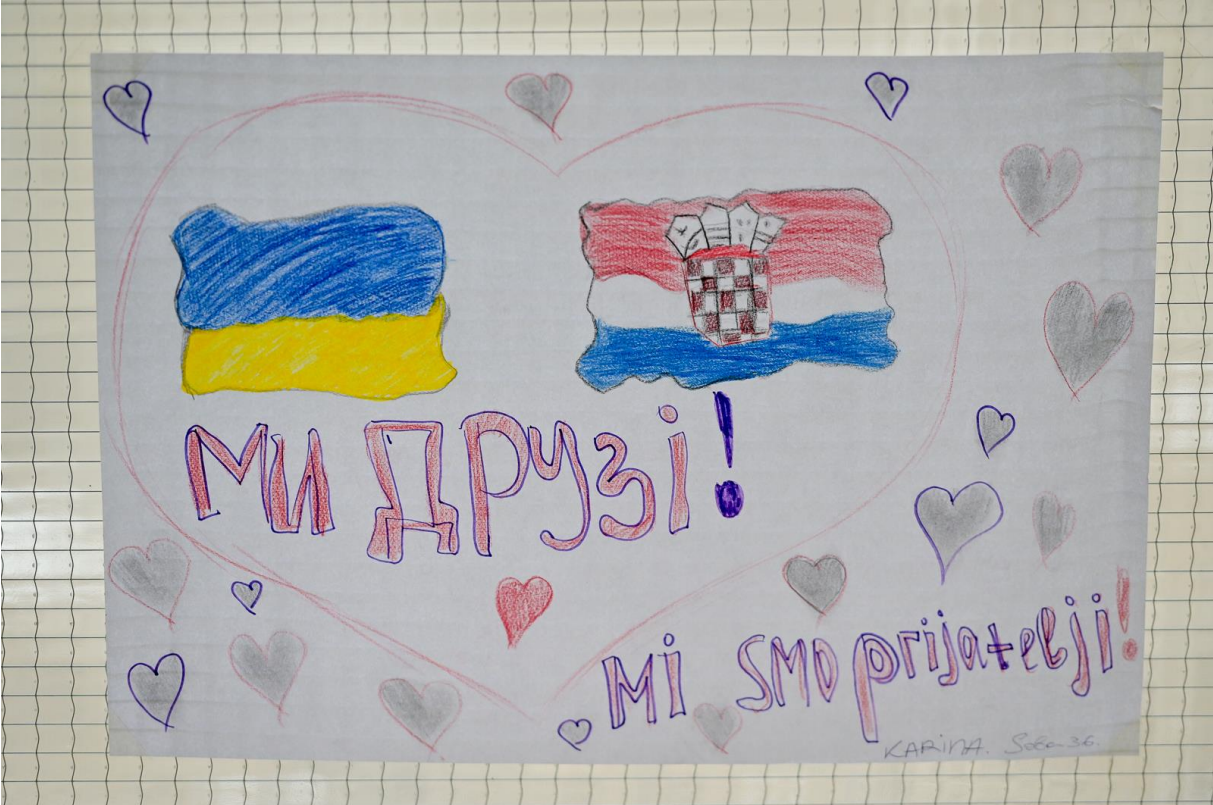 Ми друзі!
Mi smo prijatelji!
KARINA. Soba 36.